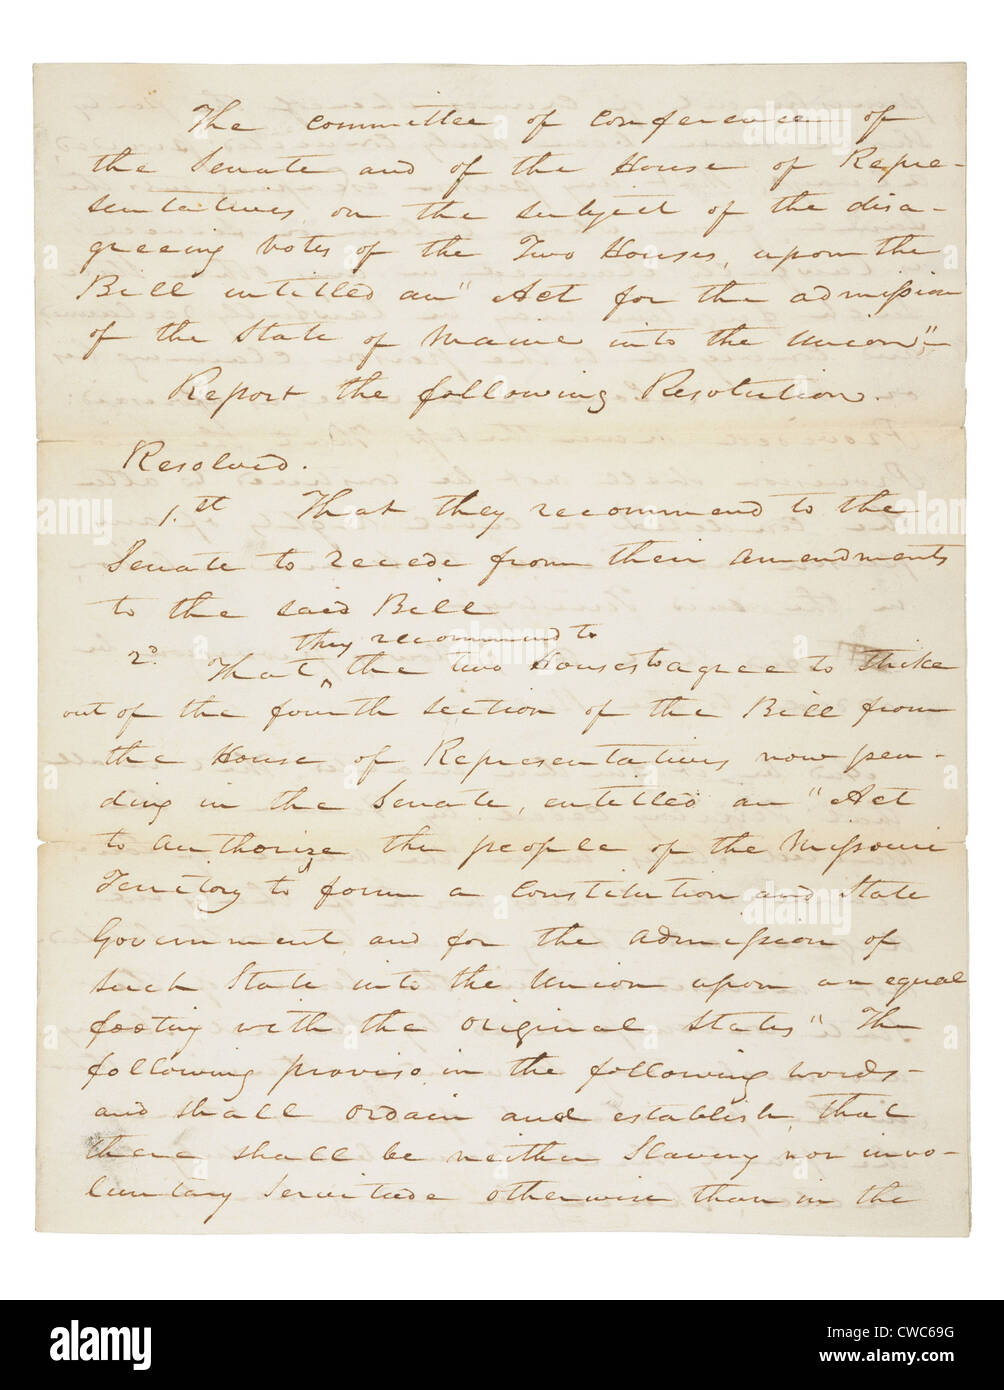 The committee of conference of
the Senate and of the House of Repre-
sentatives on the subject of the disa-
greeing votes of the Two Houses, upon the
Bill entitled an "Act for the admission
of the State of Maine into the Union",-
Report the following Resolution.
Resolved.
1.st That they recommend to the
Senate to recede from their amendments
to the said Bill
they recommend to
2d. That ^ the two Houses to agree to strike
out of the fourth section of the Bill from
the House of Representatives now pen-
ding in the Senate, entitled an "Act
to authorize the people of the Missouri
Territory to form a Constitution and State
Government and for the admission of
such State into the Union upon an equal
footing with the original States" The
following proviso in the following words-
and shall ordain and establish, that
there shall be neither Slavery nor invo-
luntary Servitude otherwise than in the
a
alamy
alamy
Image ID: CWC69G
www.alamy.com